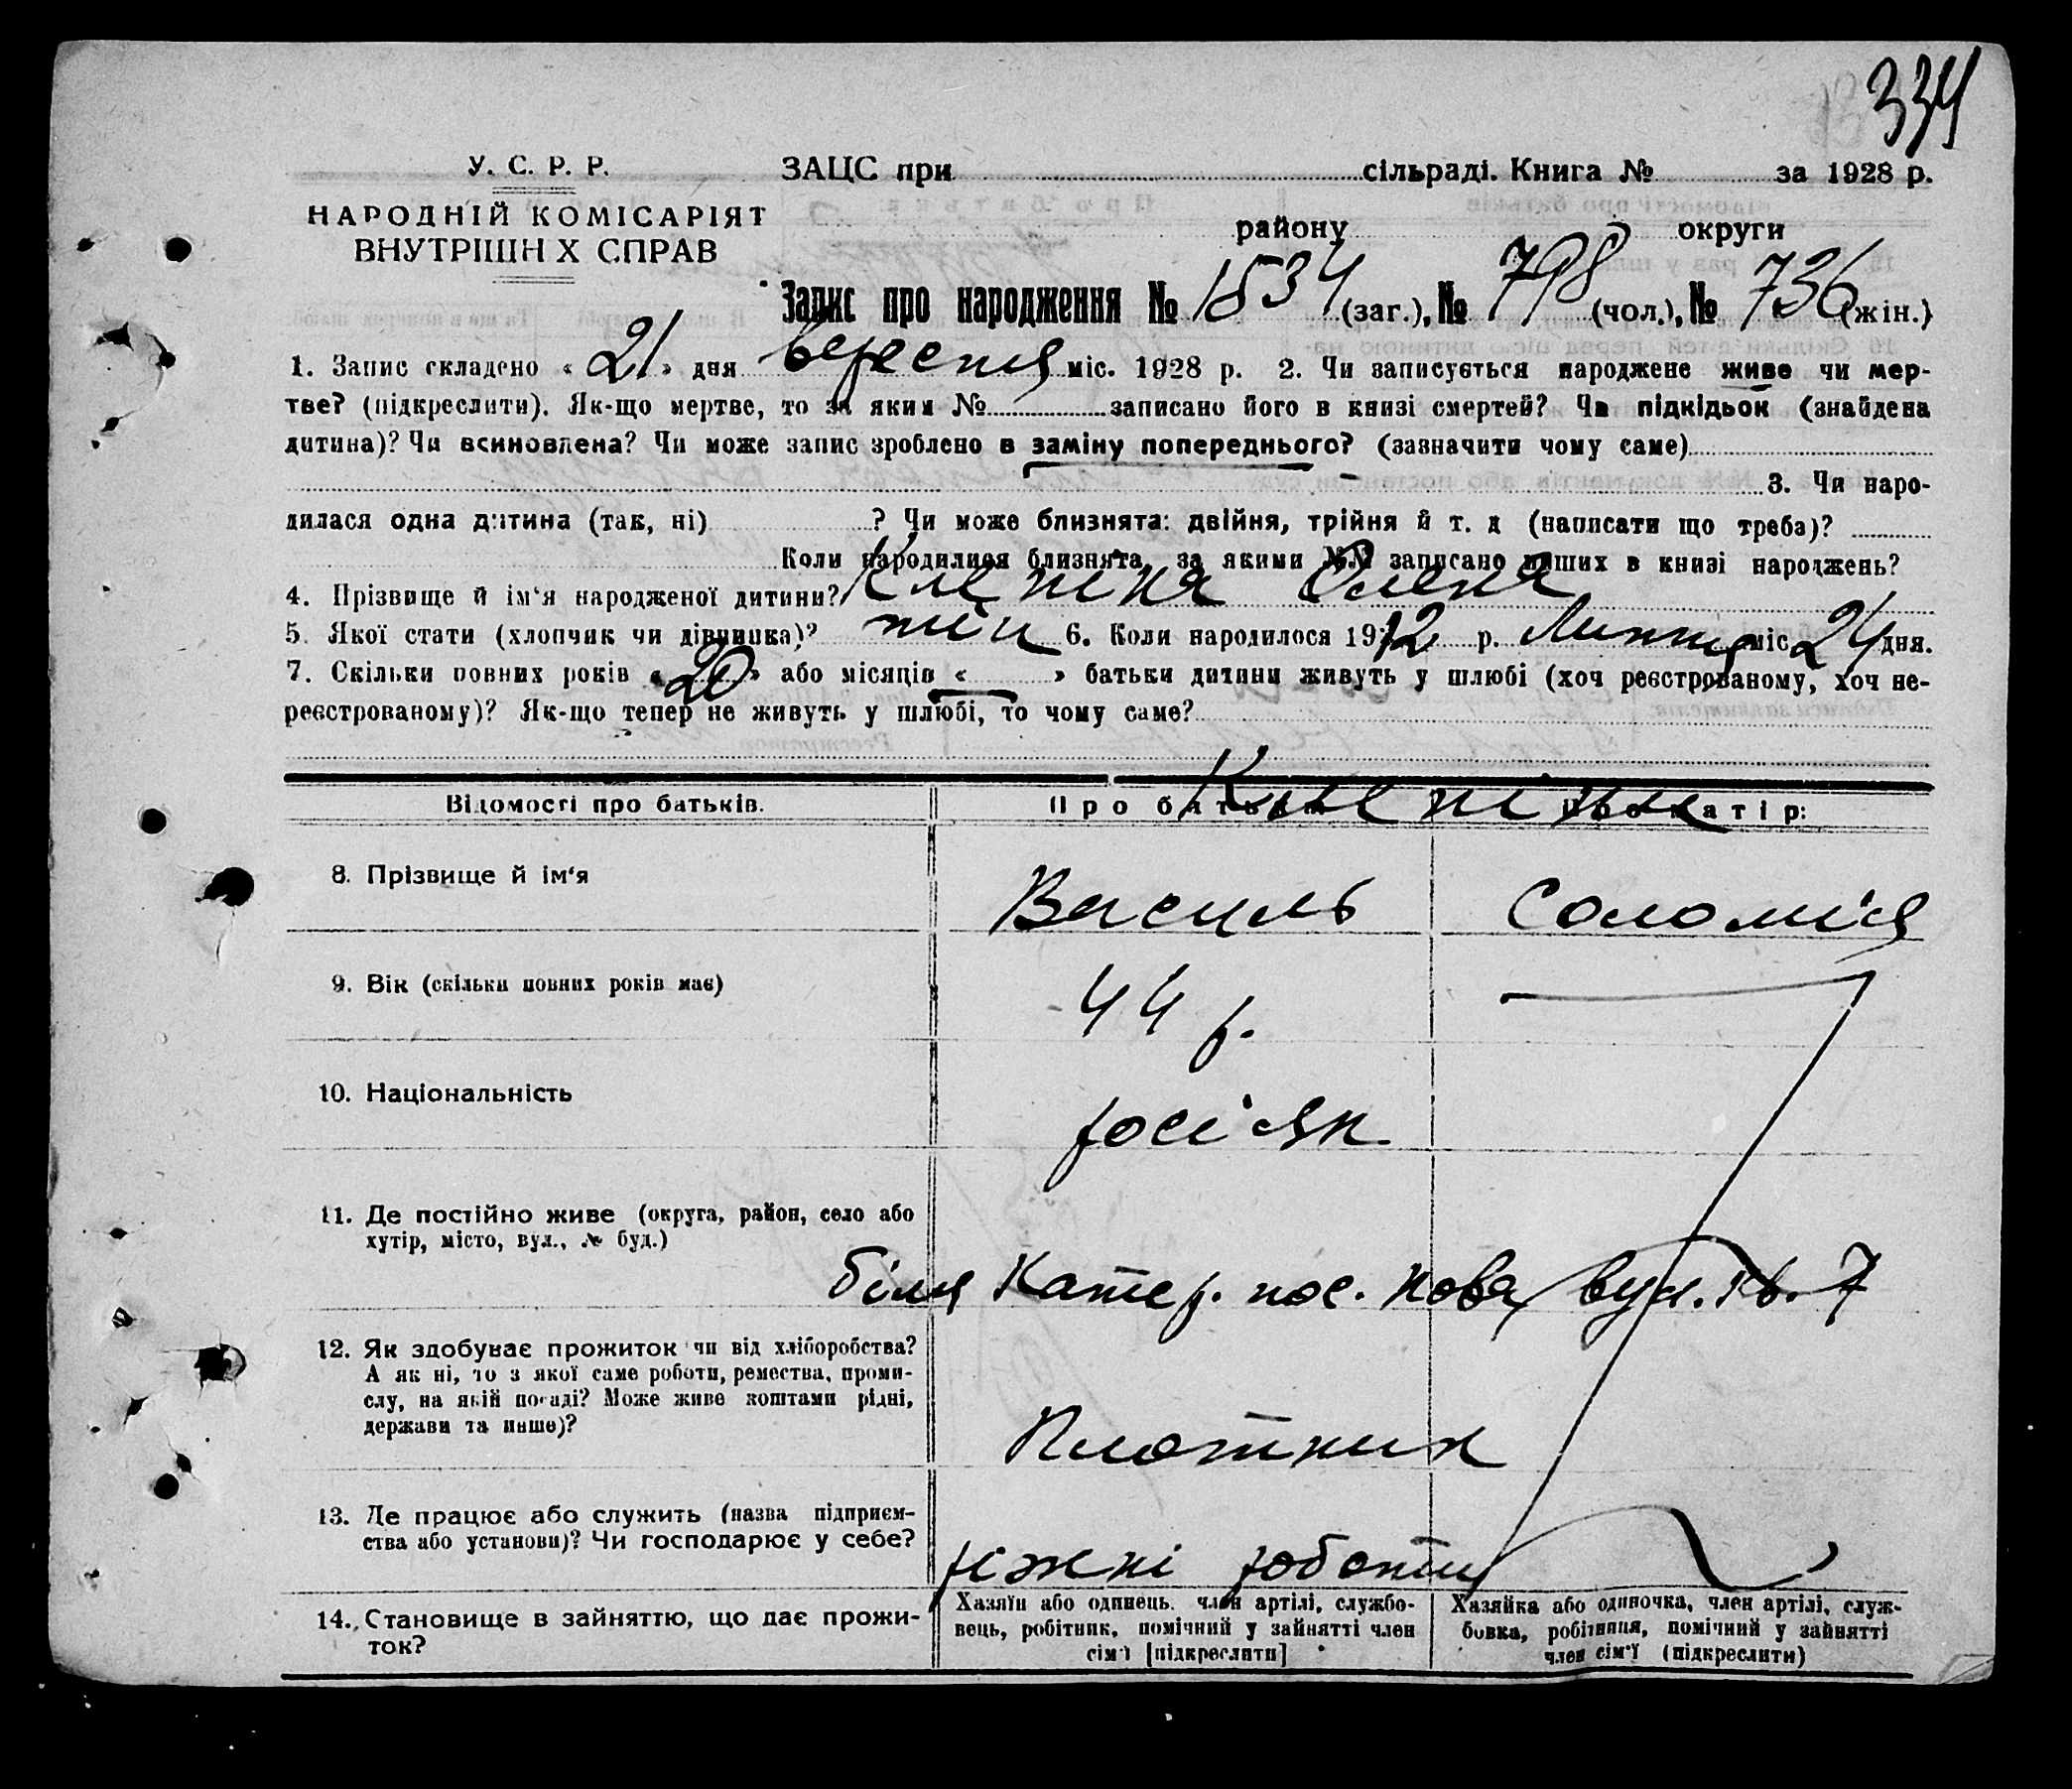 334
У. С. Р. Р.
НАРОДНІЙ КОМІСАРІЯТ
ВНУТРІШН Х СПРАВ
ЗАЦС при сільраді. Книга № за 1928 р.
району округи
Запис про народження № 1534 (заг.), № 798 (чол.), № 736 (жін.)
1. Запис складено « 21 » дня вересня міс. 1928 р. 2. Чи записується народжене живе чи мер-
тве? (підкреслити). Як-що мертве, то за яким № записано його в книзі смертей? Чи підкідьок (знайдена
дитина)? Чи всиновлена? Чи може запис зроблено в заміну попереднього? (зазначити чому саме)
3. Чи наро-
дилася одна дитина (так, ні) ? Чи може близнята: двійня, трійня й т. д (написати що треба)?
Коли народилися близнята, за якими №№ записано инших в книзі народжень?
4. Прізвище й ім‘я народженої дитини? Олена
5. Якої стати (хлопчик чи дівчинка)? жін 6. Коли народилося 1912 р. Липня міс. 24 дня.
7. Скільки повних років « 20 » або місяців « » батьки дитини живуть у шлюбі (хоч реєстрованому, хоч не-
реєстрованому)? Як-що тепер не живуть у шлюбі, то чому саме?
Відомості про батьків. Про батька Про матір:
8. Прізвище й ім‘я Василь Соломія
9. Вік (скільки повних років має) 44 р.
10. Національність росіян.
11. Де постійно живе (округа, район, село або
хутір, місто, вул., № буд.)
біля Катер. пос. Нова вул. кв. 7
12. Як здобуває прожиток чи від хліборобства?
А як ні, то з якої саме роботи, ремества, проми-
слу, на якій посаді? Може живе коштами рідні,
держави та инше)?
Плотник
13. Де працює або служить (назва підприєм-
ства або установи)? Чи господарює у себе?
ріжні роботи
14. Становище в зайняттю, що дає прожи-
ток?
Хазяїн або одинець, член артілі, службо-
вець, робітник, помічний у зайнятті член
сім‘ї [підкреслити]
Хазяйка або одиночка, член артілі, служ-
бовка, робітниця, помічний у зайнятті
член сім‘ї (підкреслити)